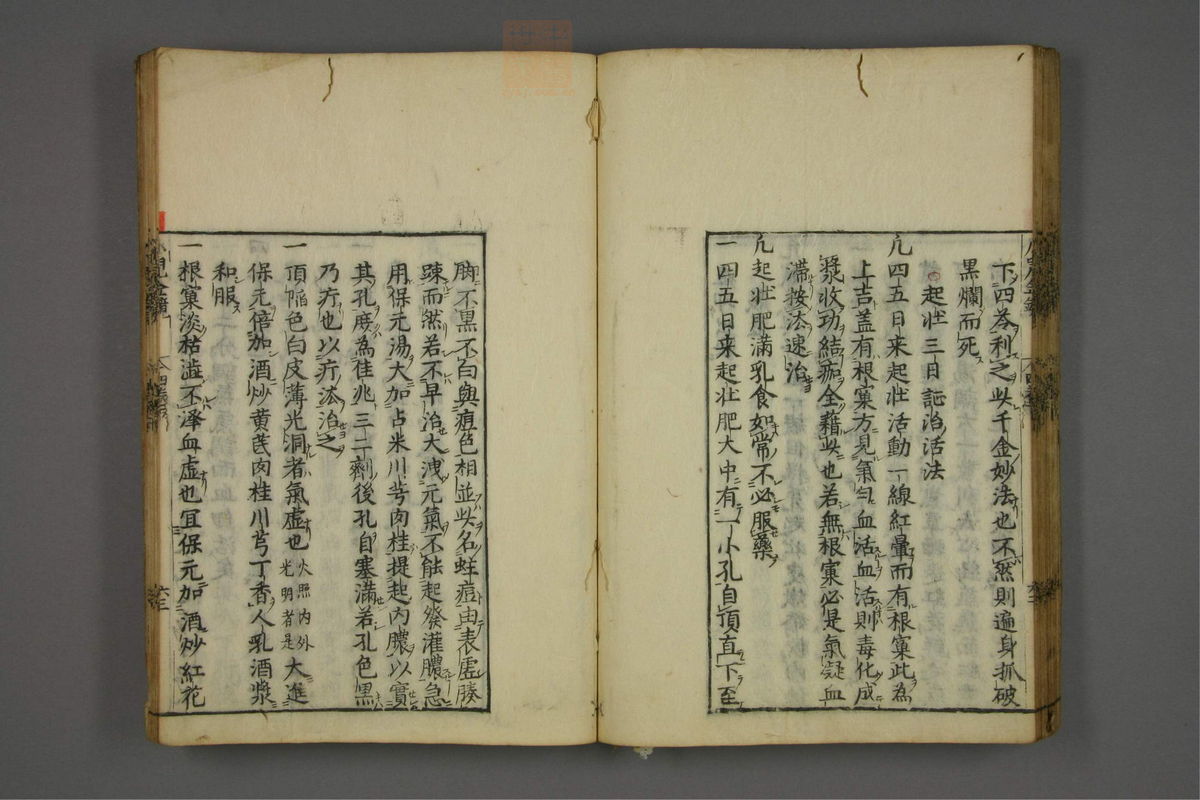 下四苓利之此千金妙法也不然則遍身抓破
黒爛而死
起壯三日証治活法
凢四五日来起壯活動一線紅暈而有根窠此為
上吉盖有根窠方見氣匀血活血活則毒化成
漿收功結痂全藉此也若無根窠必是氣凝血
滯按法速治
凢起壯肥滿乳食如常不必服藥
一四五日来起壯肥大中有一小孔自頂直下至
脚不黒不白與痘色相並此名蛀痘由表虚腠
踈而然若不早治大洩元氣不能起發灌膿急
用保元湯大加占米川芎肉桂提起内膿以實
其孔庶為佳兆三二劑後孔自塞滿若孔色黒
乃疔也以疔法治之
一頂陷色白皮薄光洞者氣虚也火照内外光明者是大進
保元倍加酒炒黄芪肉桂川芎丁香人乳酒漿
和服
一根窠淡枯澁不泽血虚也宜保元加酒炒紅花